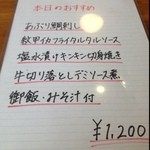 本日のおすすめ
あぶり鯛刺し
紋甲イカフライタルタルソース
塩水漬けキンキン切身焼き
牛切り落としデミソース煮
御飯・みそ汁付
¥1,200